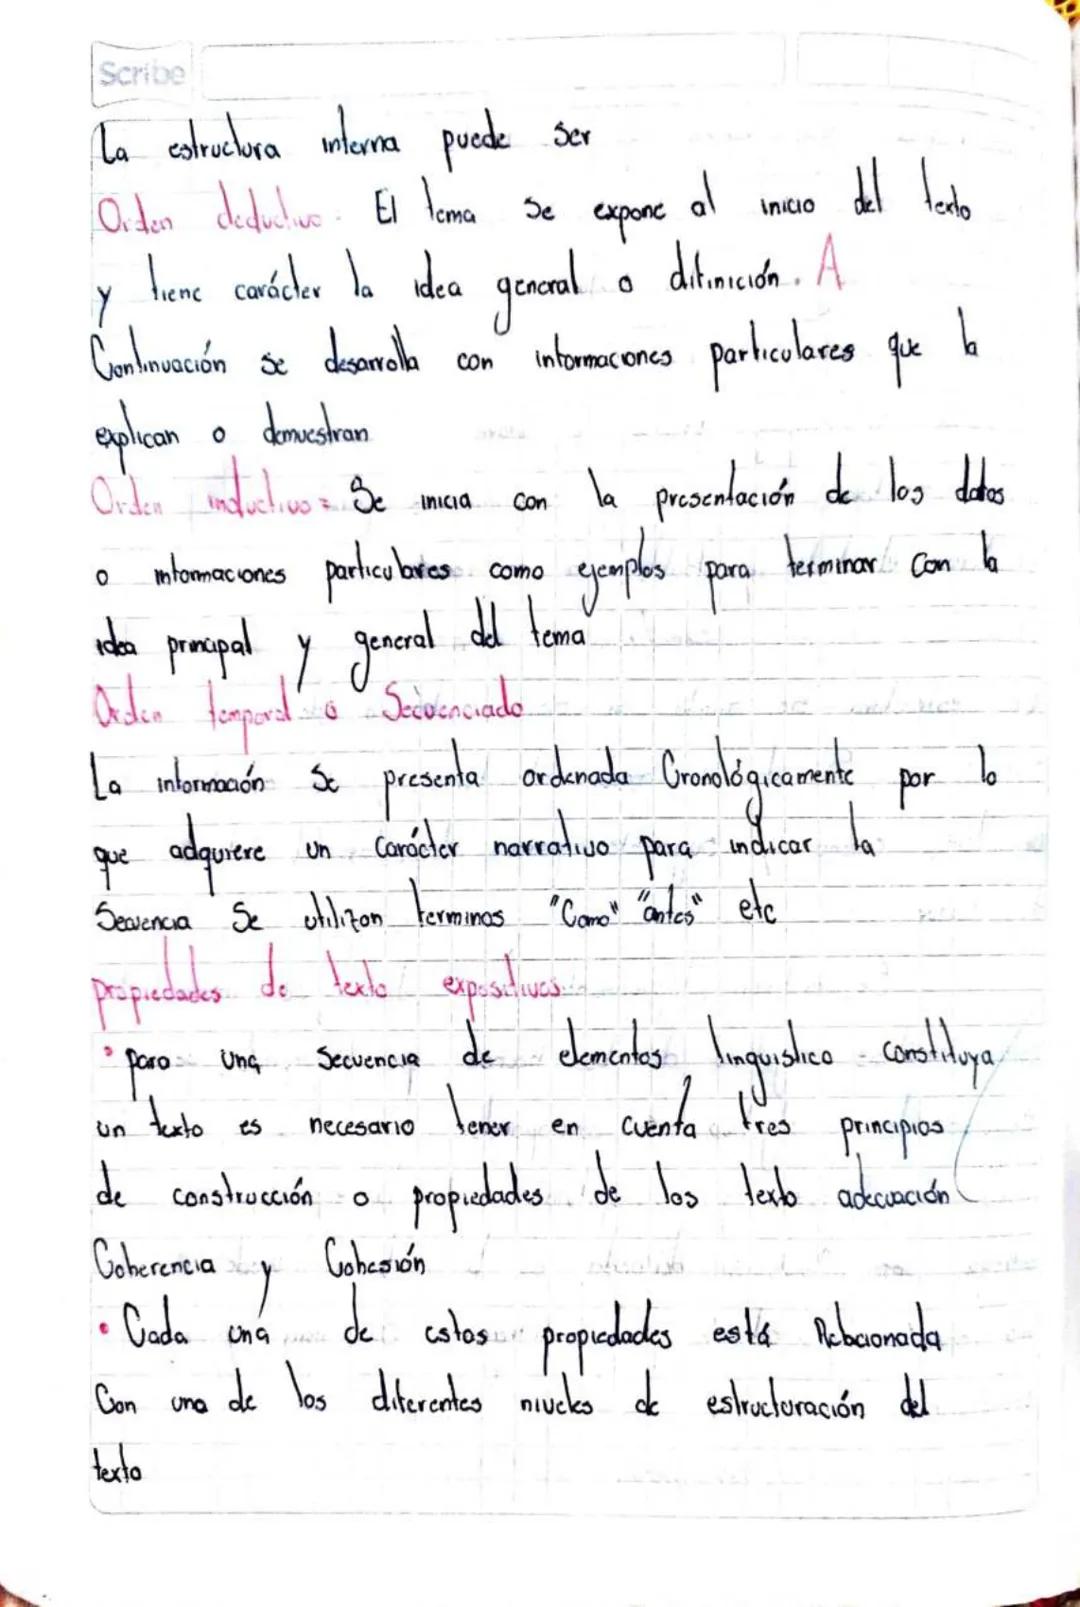 Scribe
La estructura interna puede ser
Orden deductivo: El tema se expone al inicio del texto
y tiene carácter la idea general o difinición. A
Continuación se desarrolla con informaciones particulares que la
explican o demuestran
Orden inductivo: Se inicia con la presentación de los datos
o informaciones particulares como ejemplos para terminar con la
idea principal y general del tema
Orden temporal o Secuenciado
La información se presenta ordenada Cronológicamente por lo
que adquiere un Carácter narrativo para indicar la
Secuencia Se utilizan terminos "Como" "antes" etc
propiedades de texto expositivos
• para una Secuencia de elementos linguistico constituya
un texto es necesario tener en cuenta tres principios
de construcción o propiedades de los texto adecuación
Coherencia y Cohesión
• Cada una de estas propiedades está Relacionada
Con uno de los diferentes niveles de estructuración del
texto